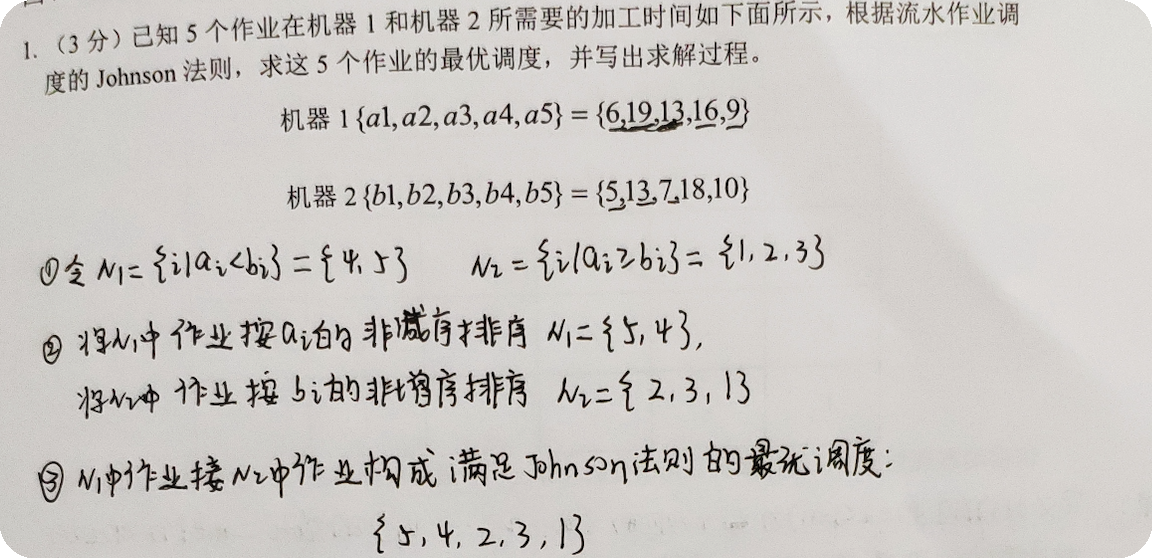 1. （3 分）已知 5 个作业在机器 1 和机器 2 所需要的加工时间如下面所示，根据流水作业调
度的 Johnson 法则，求这 5 个作业的最优调度，并写出求解过程。
机器 1 {a1, a2, a3, a4, a5} = {6,19,13,16,9}
机器 2 {b1, b2, b3, b4, b5} = {5,13,7,18,10}
①令 N₁= {i|aᵢ<bᵢ} = {4, 5} N₂ = {i|aᵢ≥bᵢ} = {1, 2, 3}
② 将N₁中作业按aᵢ的非减序排序 N₁= {5, 4},
将N₂中作业按bᵢ的非增序排序 N₂= {2, 3, 1}
③ N₁中作业接N₂中作业构成满足Johnson法则的最优调度:
{5, 4, 2, 3, 1}